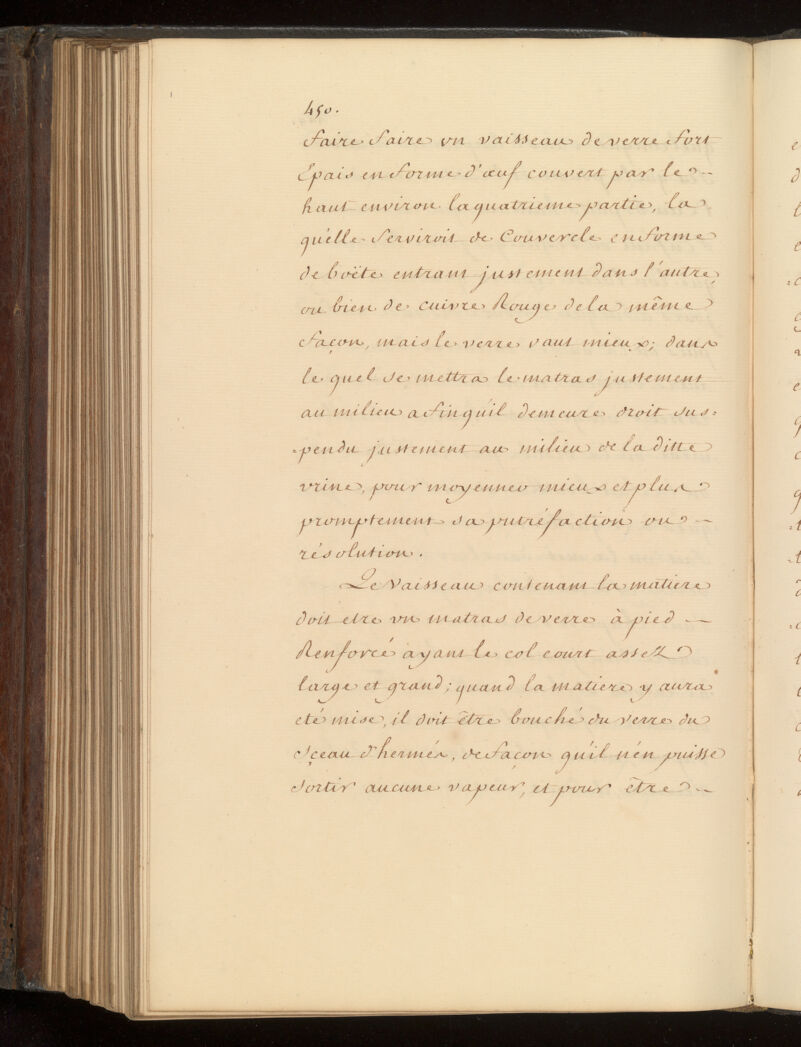 450.
faire faire vn vaisseau de verre fort
Épais en forme d'œuf couvert par le
haut environ la quatrieme partie, la
qu'elle serviroit de Couvercle en forme
de boëte entrant justement dans l'autre,
ou bien de cuivre Rouge de la même
façon, mais le verre vaut mieux; dans
le quel se mettra le matras justement
au milieu afin qu'il demeure droit sus=
=pendu justement au milieu de la ditte
vrine, pour moyenner mieux et plus
promptement sa putréfaction ou
résolution.
Le Vaisseau contenant la matiere
doit etre vn matras de verre à pied
Renforcé ayant le col court assez
large et grand; quand la matiere y aura
eté mise, il doit être bouché du verre du
Sçeau d'hermés, de façon qu'il n'en puisse
sortir aucune vapeur, et pour être